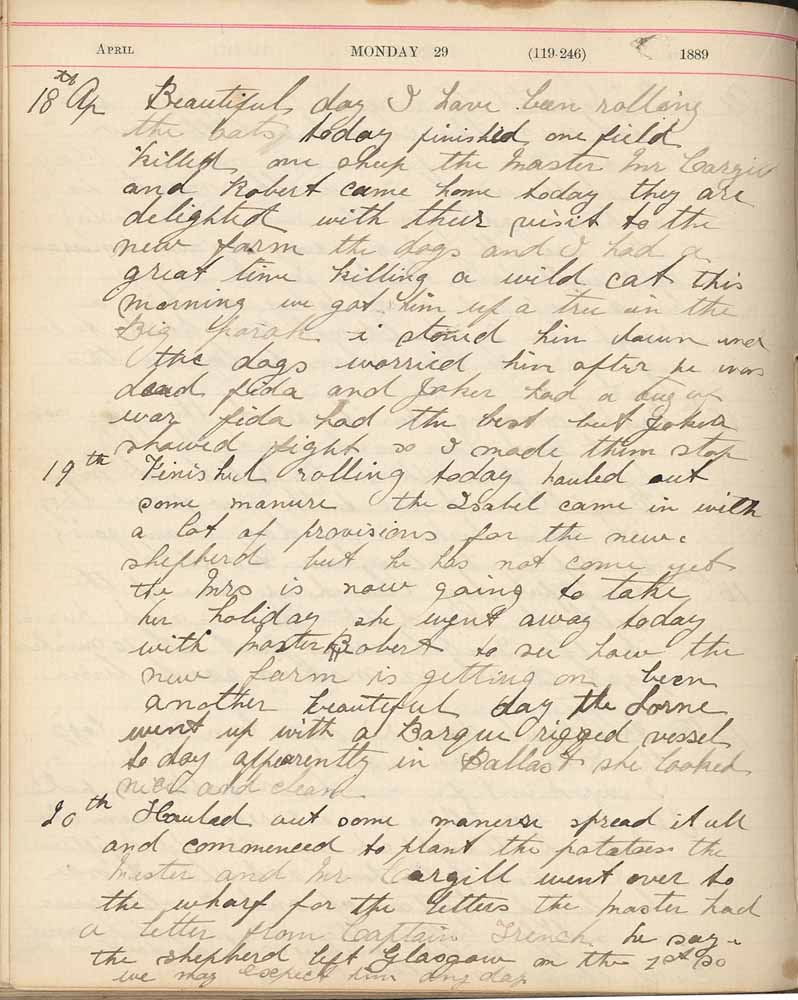 April MONDAY 29 (119-246) 1889
18th Ap Beautiful day I have been rolling
the oats today finished one field
killed one sheep the Master Mr Cargill
and Robert came home today they are
delighted with their visit to the
new farm the dogs and I had a
great time killing a wild cat this
morning we got him up a tree in the
Big i stoned him down and
the dogs worried him after he was
dead fida and Joker had a tug of
war fida had the best but Joker
showed fight so I made them stop
19th Finished rolling today hauled out
some manure the Isabel came in with
a lot of provisions for the new
shepherd but he has not come yet
the Mrs is now going to take
her holiday she went away today
with Master Robert to see how the
new farm is getting on been
another beautiful day the Lorne
went up with a Barque rigged vessel
to day apparently in Ballast she looked
nice and clean
20th Hauled out some manure spread it all
and commenced to plant the potatoes the
Master and Mr Cargill went over to
the wharf for the letters the Master had
a letter from Captain French he says
the shepherd left Glasgow on the 1st so
we may expect him any day